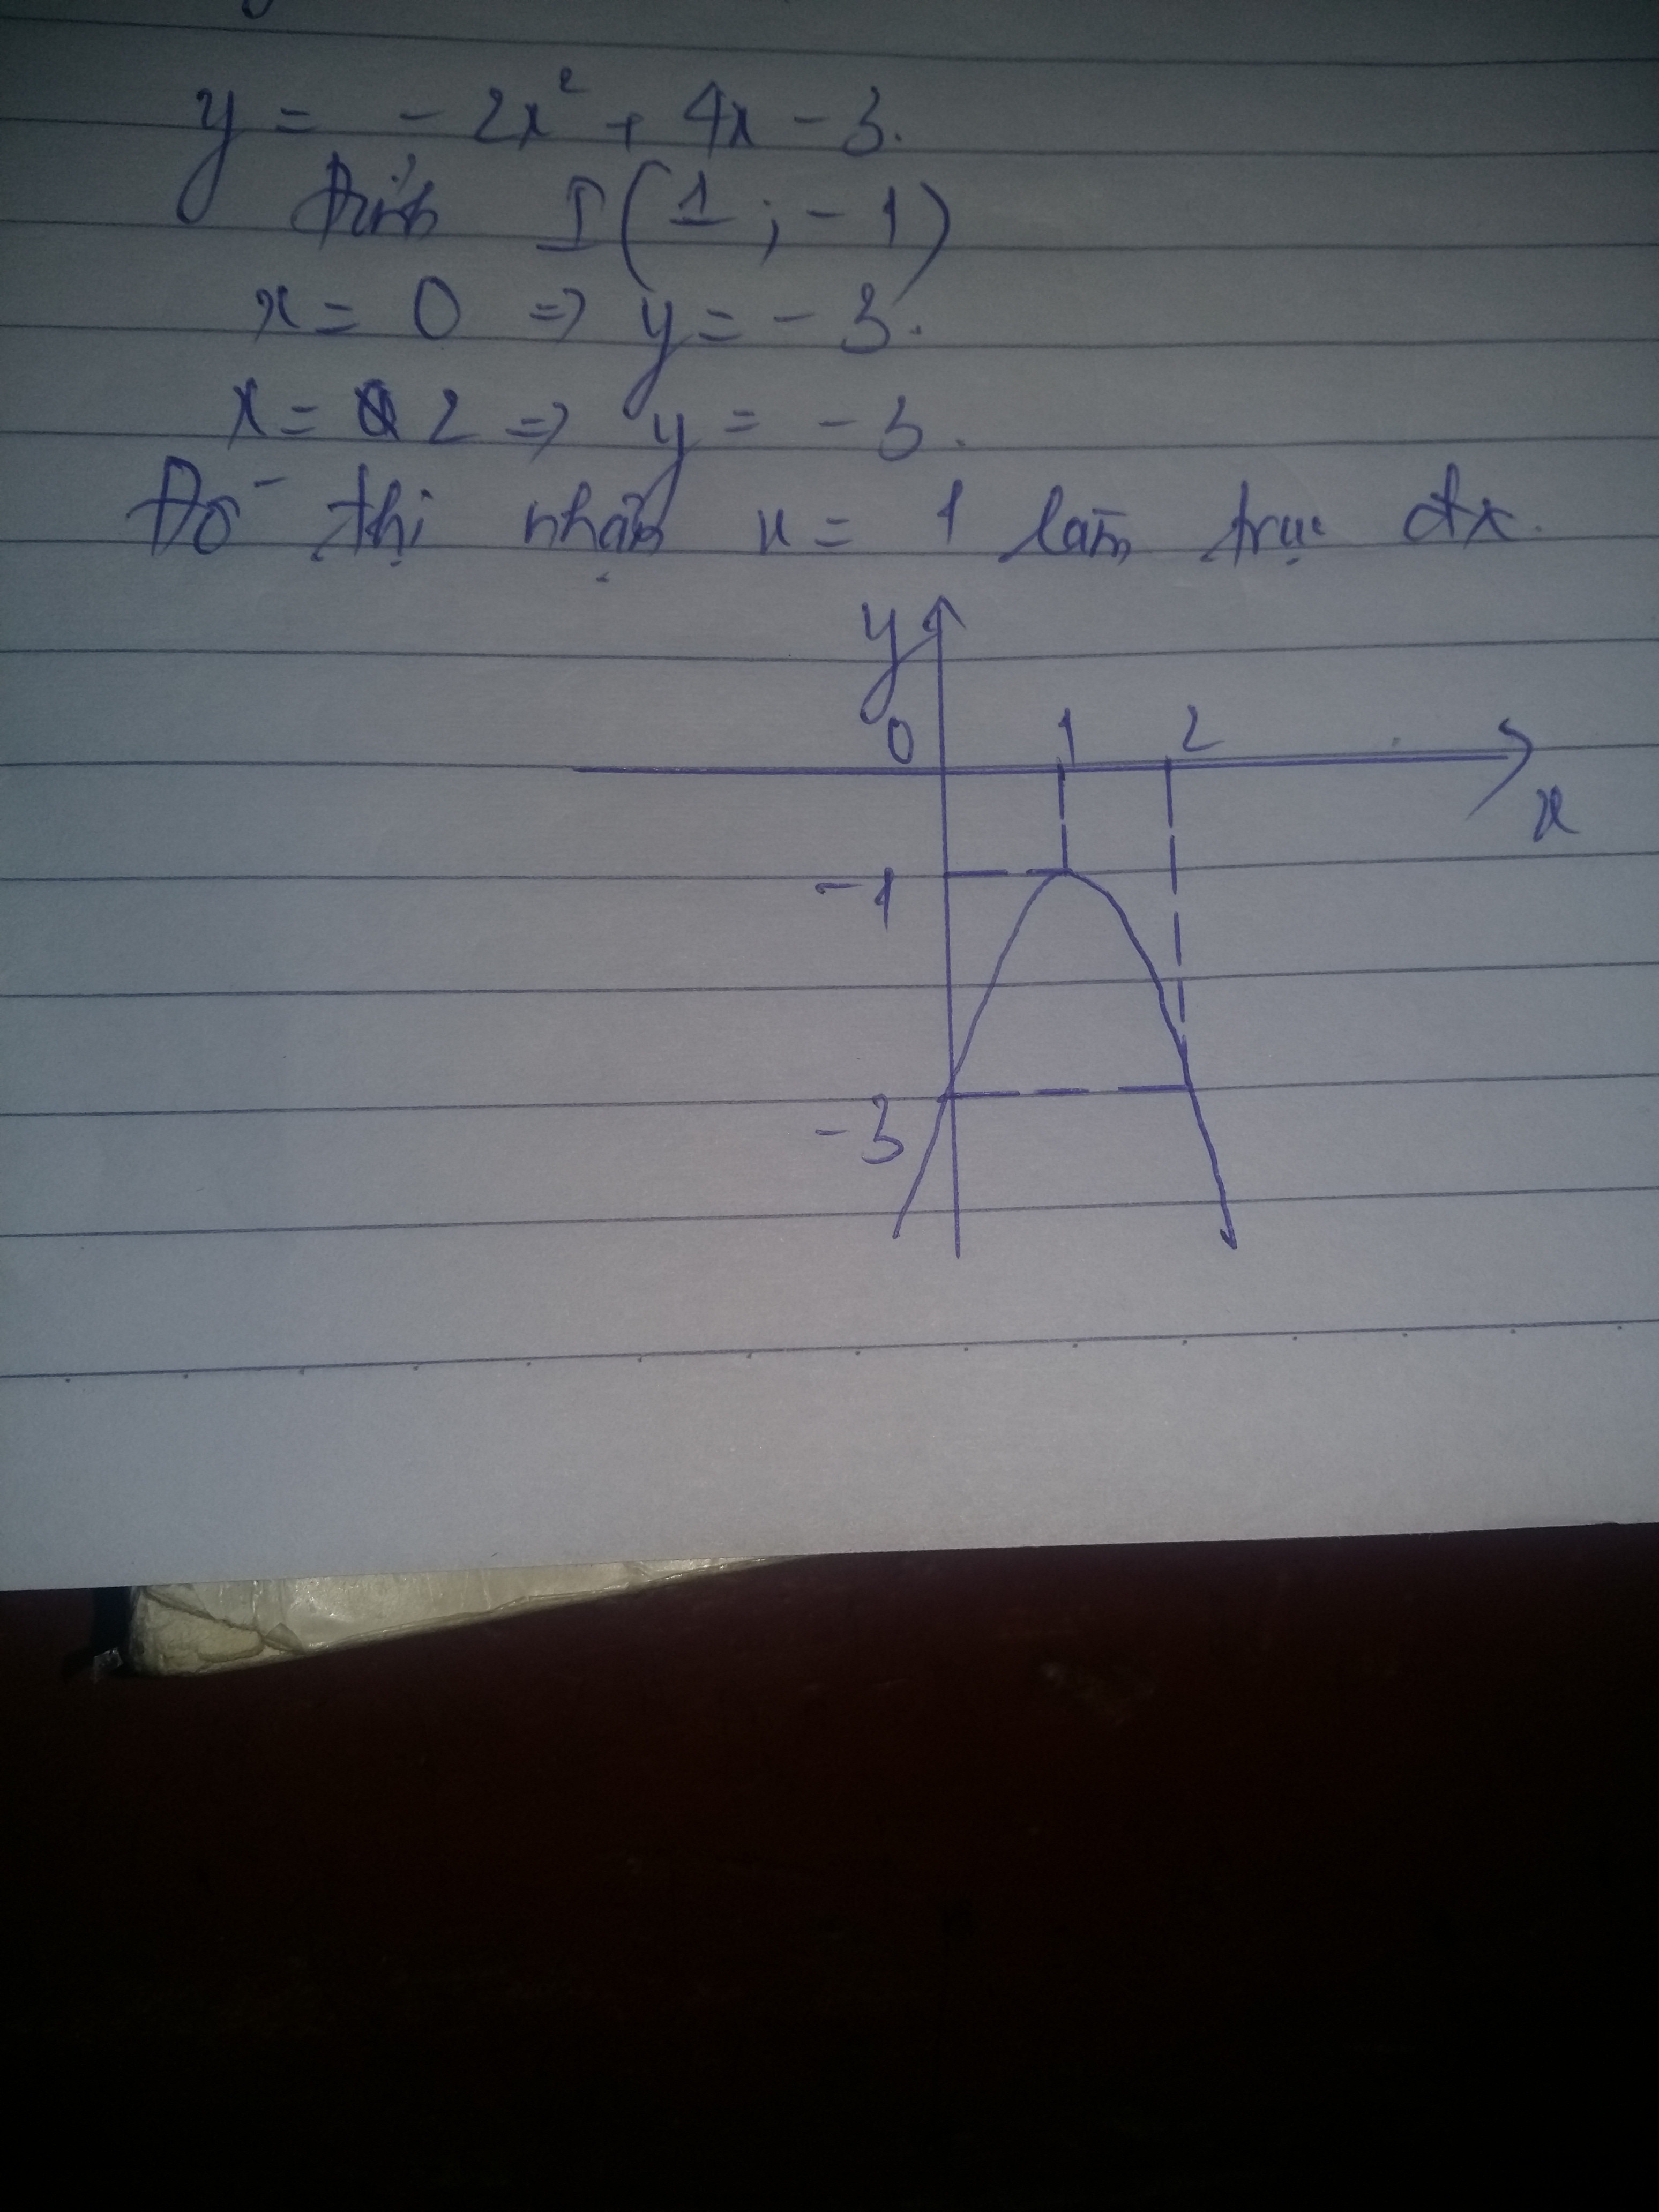 y = - 2x² + 4x - 3.
Đỉnh I(1; -1)
x = 0 => y = - 3.
x = 2 => y = - 3.
Đồ thị nhận x = 1 làm trục đx.
y
0 1 2
x
-1
-3